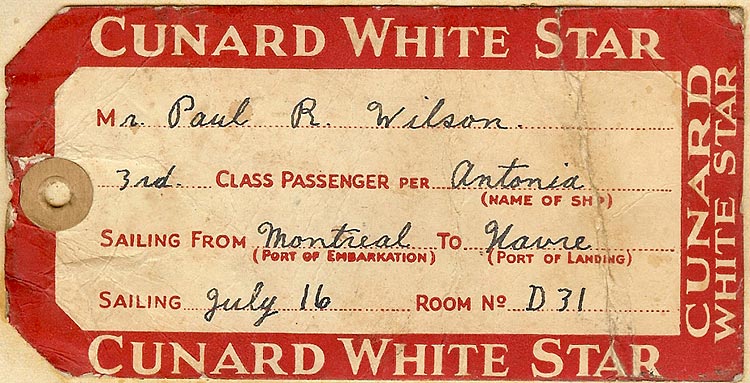 CUNARD WHITE STAR
Mr. Paul R. Wilson.
3rd. CLASS PASSENGER PER Antonia
(NAME OF SHIP)
SAILING FROM Montreal TO Havre
(PORT OF EMBARKATION) (PORT OF LANDING)
SAILING July 16 ROOM No D 31
CUNARD WHITE STAR
CUNARD
WHITE STAR